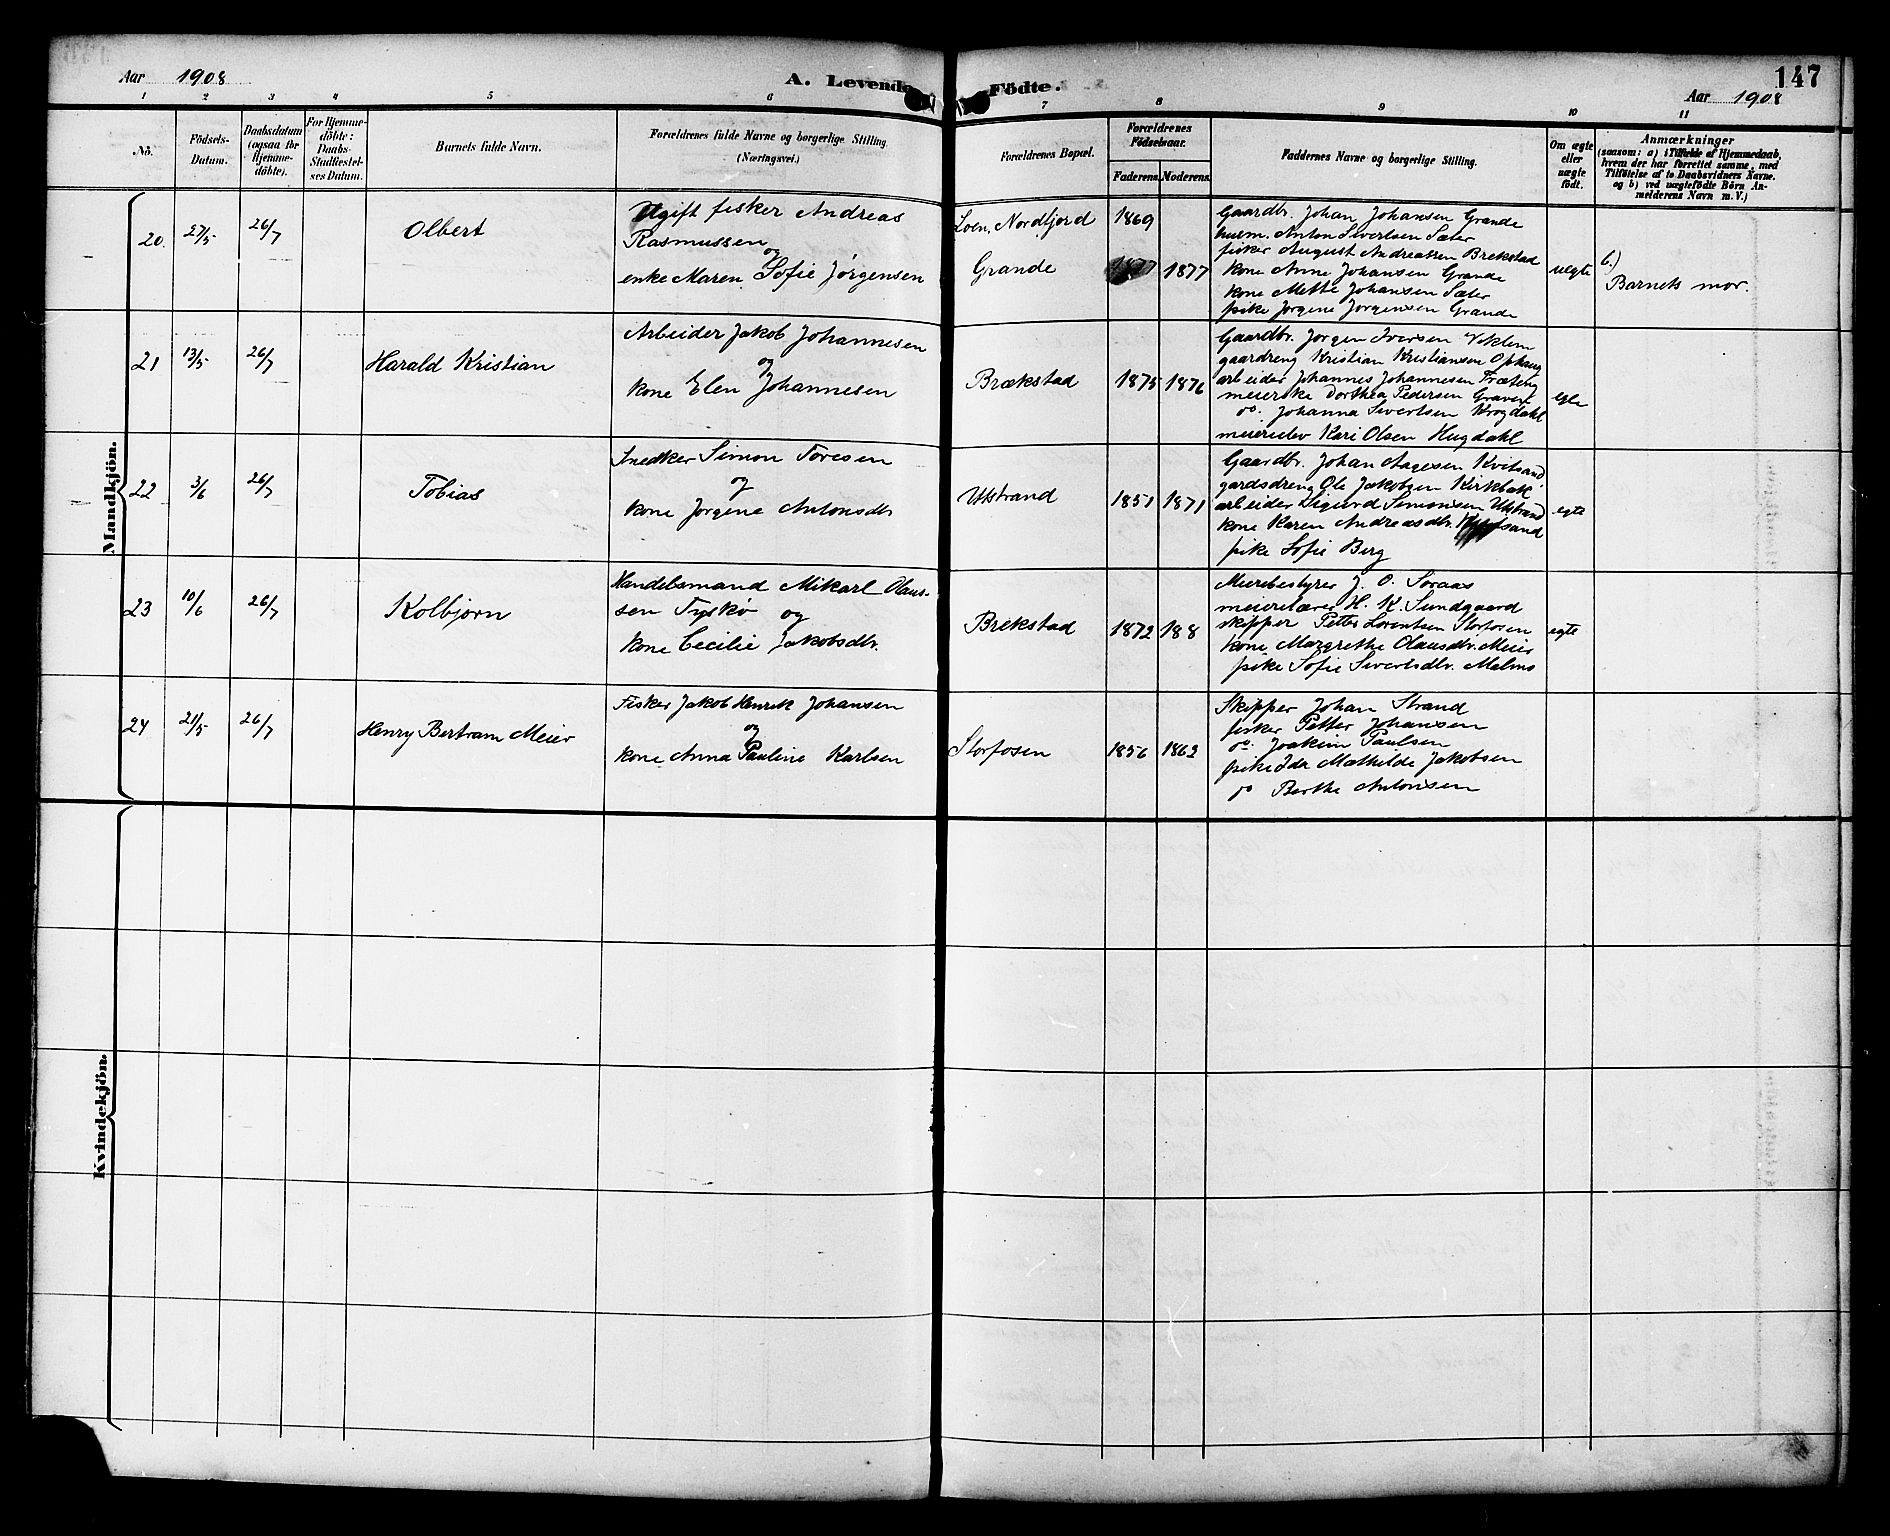 Aar 1908
A. Levende Födte.
147
Aar 1908
1 2 3 4 5 6 7 8 9 10 11
No.
Födsels-
Datum.
Daabsdatum
(ogsaa for
Hjemme-
döbte).
For Hjemme-
döbte:
Daabs-
Stadfæstel-
ses Datum.
Barnets fulde Navn.
Forældrenes fulde Navne og borgerlige Stilling
(Næringsvei.)
Forældrenes Bopæl.
Forældrenes
Födselsaar.
Faderens. Moderens.
Faddernes Navne og borgerlige Stilling.
Om ægte
eller
uægte
födt.
Anmærkninger
(saasom: a) i Tilfælde af Hjemmedaab,
hvem der har forrettet samme, med
Tilföielse af to Daabsvidners Navne.
og b) ved uægtefödte Börn An-
melderens Navn m.V.)
Mandkjön.
20. 27/5 26/7
Olbert
Ugift fisker Andreas
Rasmussen
og
enke Maren Sofie Jørgensen
Loen, Nordfjord
Grande
1869
1877 1877
Gaardbr. Johan Johansen Grande
husm. Anton Sivertsen Sæter
fisker August Andreassen Brekstad
kone Anne Johansen Grande
kone Mette Johansen Sæter
pike Jørgine Jørgensen Grande
uegte
b.)
Barnets mor.
21 13/5 26/7
Harald Kristian
Arbeider Jakob Johannesen
og
kone Elen Johannesen
Brækstad
1875 1876
Gaardbr. Jørgen Iversen Veklem
gaardreng Kristian Kristiansen Ophaug
arbeider Johannes Johannesen Træteng
meierske Dorthea Pedersen
do. Johanna Sivertsen Krogdahl
meierielev Kari Olsen Hugdahl
egte
22 3/6 26/7
Tobias
Snedker Simon Toresen
og
kone Jørgine Antonsdtr.
Utstrand
1851 1871
Gaardbr. Johan Aagesen Kvitsand
gardsdreng Ole Jakobsen Kirkbak
arbeider Sigurd Simonsen Utstrand
kone Karen Andreasdtr. Kvitsand
pike Sofie Berg
egte
23 10/6 26/7
Kolbjørn
Handelsmand Mikarl Olaus-
sen Tyskø og
kone Cecilie Jakobsdtr.
Brekstad
1872 188
Meieribestyrer J. O. Soraas
meierilærer H. K. Sundgaard
skipper Petter Lorentsen Storfosen
kone Margrethe Olausdtr. Meier
pike Sofie Sivertsdtr. Malmo
egte
24 21/5 26/7
Henry Bertram Meier
Fisker Jakob Henrik Johansen
og
kone Anna Pauline Karlsen
Storfosen
1856 1862
Skipper Johan Strand
fisker Petter Johansen
do. Joakim Paulsen
pike Ida Mathilde Jakobsen
do Berthe Antonsen
Kvindekjön.